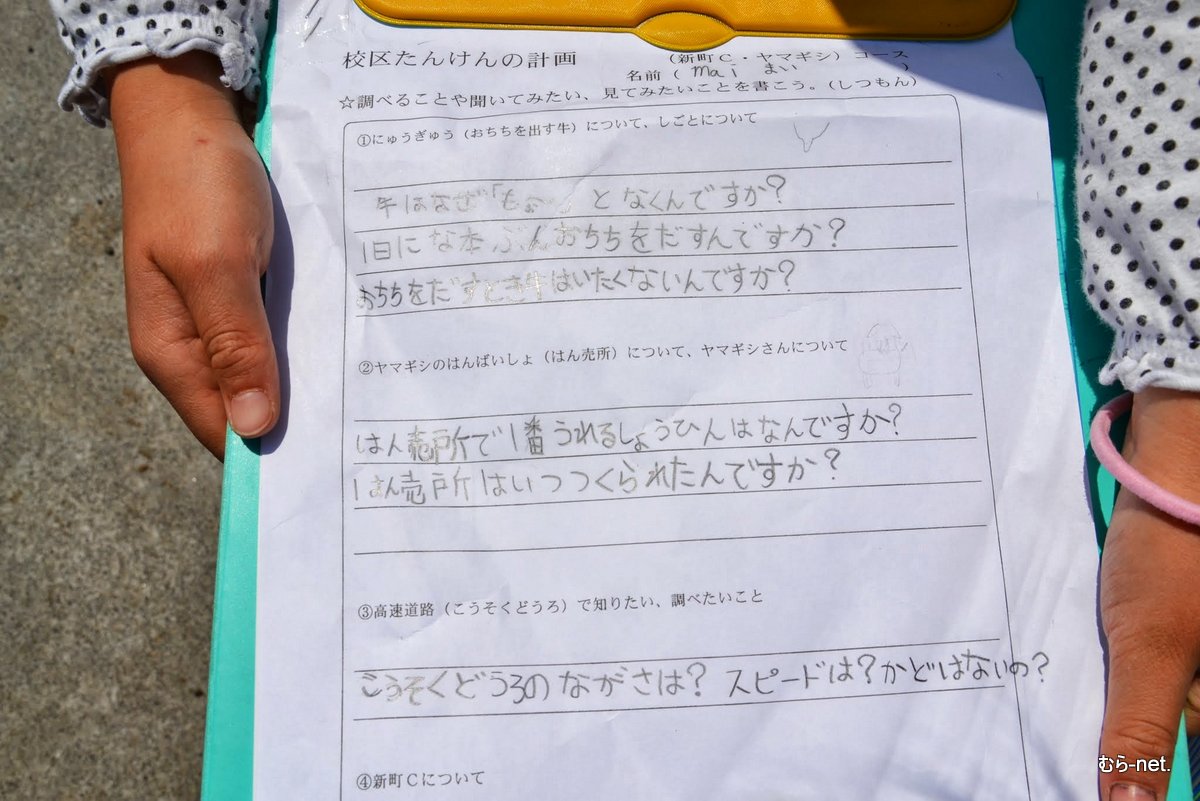 校区たんけんの計画
(新町C・ヤマギシ) コース
名前 ( mai まい )
☆調べることや聞いてみたい、見てみたいことを書こう。(しつもん)
①にゅうぎゅう(おちちを出す牛)について、しごとについて
牛はなぜ「もぉ〜」となくんですか?
1日にな本ぶんおちちをだすんですか?
おちちをだすとき牛はいたくないんですか?
②ヤマギシのはんばいしょ(はん売所)について、ヤマギシさんについて
はん売所で1番うれるしょうひんはなんですか?
はん売戸所はいつつくられたんですか?
③高速道路(こうそくどうろ)で知りたい、調べたいこと
こうそくどうろのながさは? スピードは?かどはないの?
④新町Cについて
むら-net.